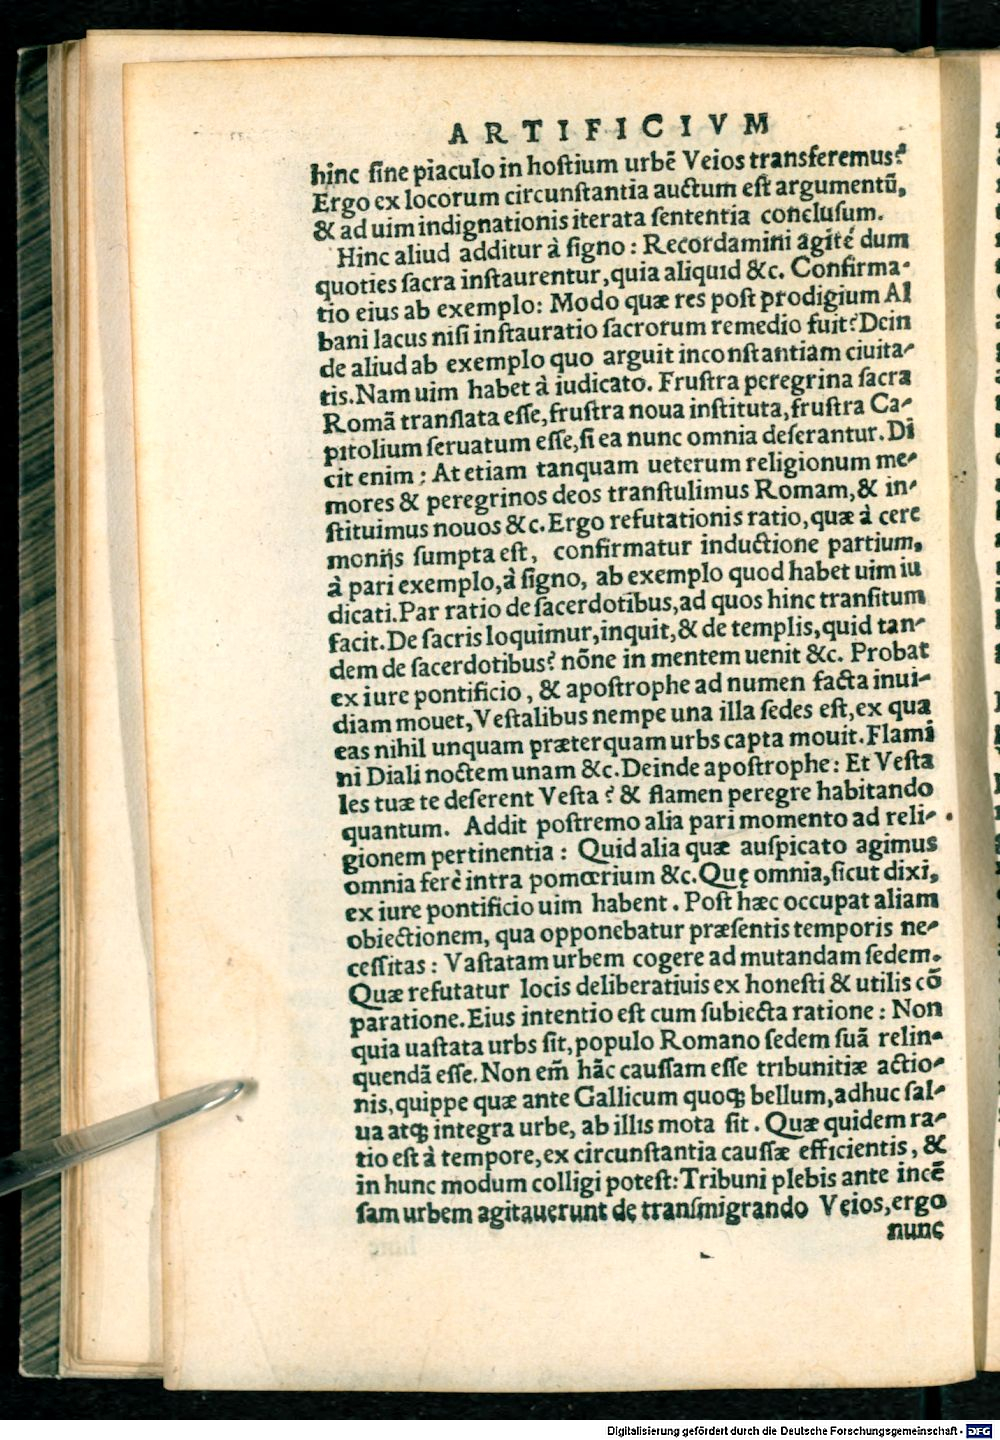 ARTIFICIVM
hinc ſine piaculo in hoſtium urbē Veios transferemus?
Ergo ex locorum circunſtantia auctum eſt argumentū,
& ad uim indignationis iterata ſententia concluſum.
Hinc aliud additur à ſigno: Recordamini agité dum
quoties ſacra inſtaurentur, quia aliquid &c. Confirma-
tio eius ab exemplo: Modo quæ res poſt prodigium Al
bani lacus niſi inſtauratio ſacrorum remedio fuit? Dein
de aliud ab exemplo quo arguit inconſtantiam ciuita-
tis. Nam uim habet à iudicato. Fruſtra peregrina ſacra
Romā translata eſſe, fruſtra noua inſtituta, fruſtra Ca-
pitolium ſeruatum eſſe, ſi ea nunc omnia deſerantur. Di
cit enim: At etiam tanquam ueterum religionum me-
mores & peregrinos deos tranſtulimus Romam, & in-
ſtituimus nouos &c. Ergo refutationis ratio, quæ à cere
monijs ſumpta eſt, confirmatur inductione partium,
à pari exemplo, à ſigno, ab exemplo quod habet uim iu
dicati. Par ratio de ſacerdotibus, ad quos hinc tranſitum
facit. De ſacris loquimur, inquit, & de templis, quid tan-
dem de ſacerdotibus? nōne in mentem uenit &c. Probat
ex iure pontificio, & apoſtrophe ad numen facta inui-
diam mouet, Veſtalibus nempe una illa ſedes eſt, ex qua
eas nihil unquam præterquam urbs capta mouit. Flami
ni Diali noctem unam &c. Deinde apoſtrophe: Et Veſta
les tuæ te deſerent Veſta? & flamen peregre habitando
quantum. Addit poſtremo alia pari momento ad reli-
gionem pertinentia: Quid alia quæ auſpicato agimus
omnia ferè intra pomœrium &c. Quę omnia, ſicut dixi,
ex iure pontificio uim habent. Poſt hæc occupat aliam
obiectionem, qua opponebatur præſentis temporis ne-
ceſſitas: Vaſtatam urbem cogere ad mutandam ſedem.
Quæ refutatur locis deliberatiuis ex honeſti & utilis cō
paratione. Eius intentio eſt cum ſubiecta ratione: Non
quia uaſtata urbs ſit, populo Romano ſedem ſuā relin-
quendā eſſe. Non em̄ hāc cauſſam eſſe tribunitiæ actio-
nis, quippe quæ ante Gallicum quoqꝫ bellum, adhuc ſal-
ua atqꝫ integra urbe, ab illis mota ſit. Quæ quidem ra-
tio eſt à tempore, ex circunſtantia cauſſæ efficientis, &
in hunc modum colligi poteſt: Tribuni plebis ante incē
ſam urbem agitauerunt de transmigrando Veios, ergo
nunc
Digitalisierung gefördert durch die Deutsche Forschungsgemeinschaft - DFG